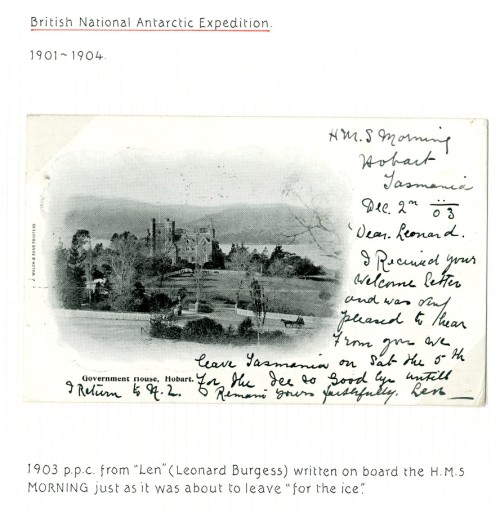 British National Antarctic Expedition.
1901~1904.
H.M.S Morning
Hobart
Tasmania
Dec. 2nd 03
Dear Leonard.
I Received your
welcome letter
and was very
pleased to hear
From you we
leave Tasmania on Sat the 5th
For the Ice so Good bye untill
I Return to N.Z.
I Remain yours faithfully. Len
Government House, Hobart.
J. WALCH & SONS
1903 p.p.c. from "Len" (Leonard Burgess) written on board the H.M.S
MORNING just as it was about to leave "for the ice".